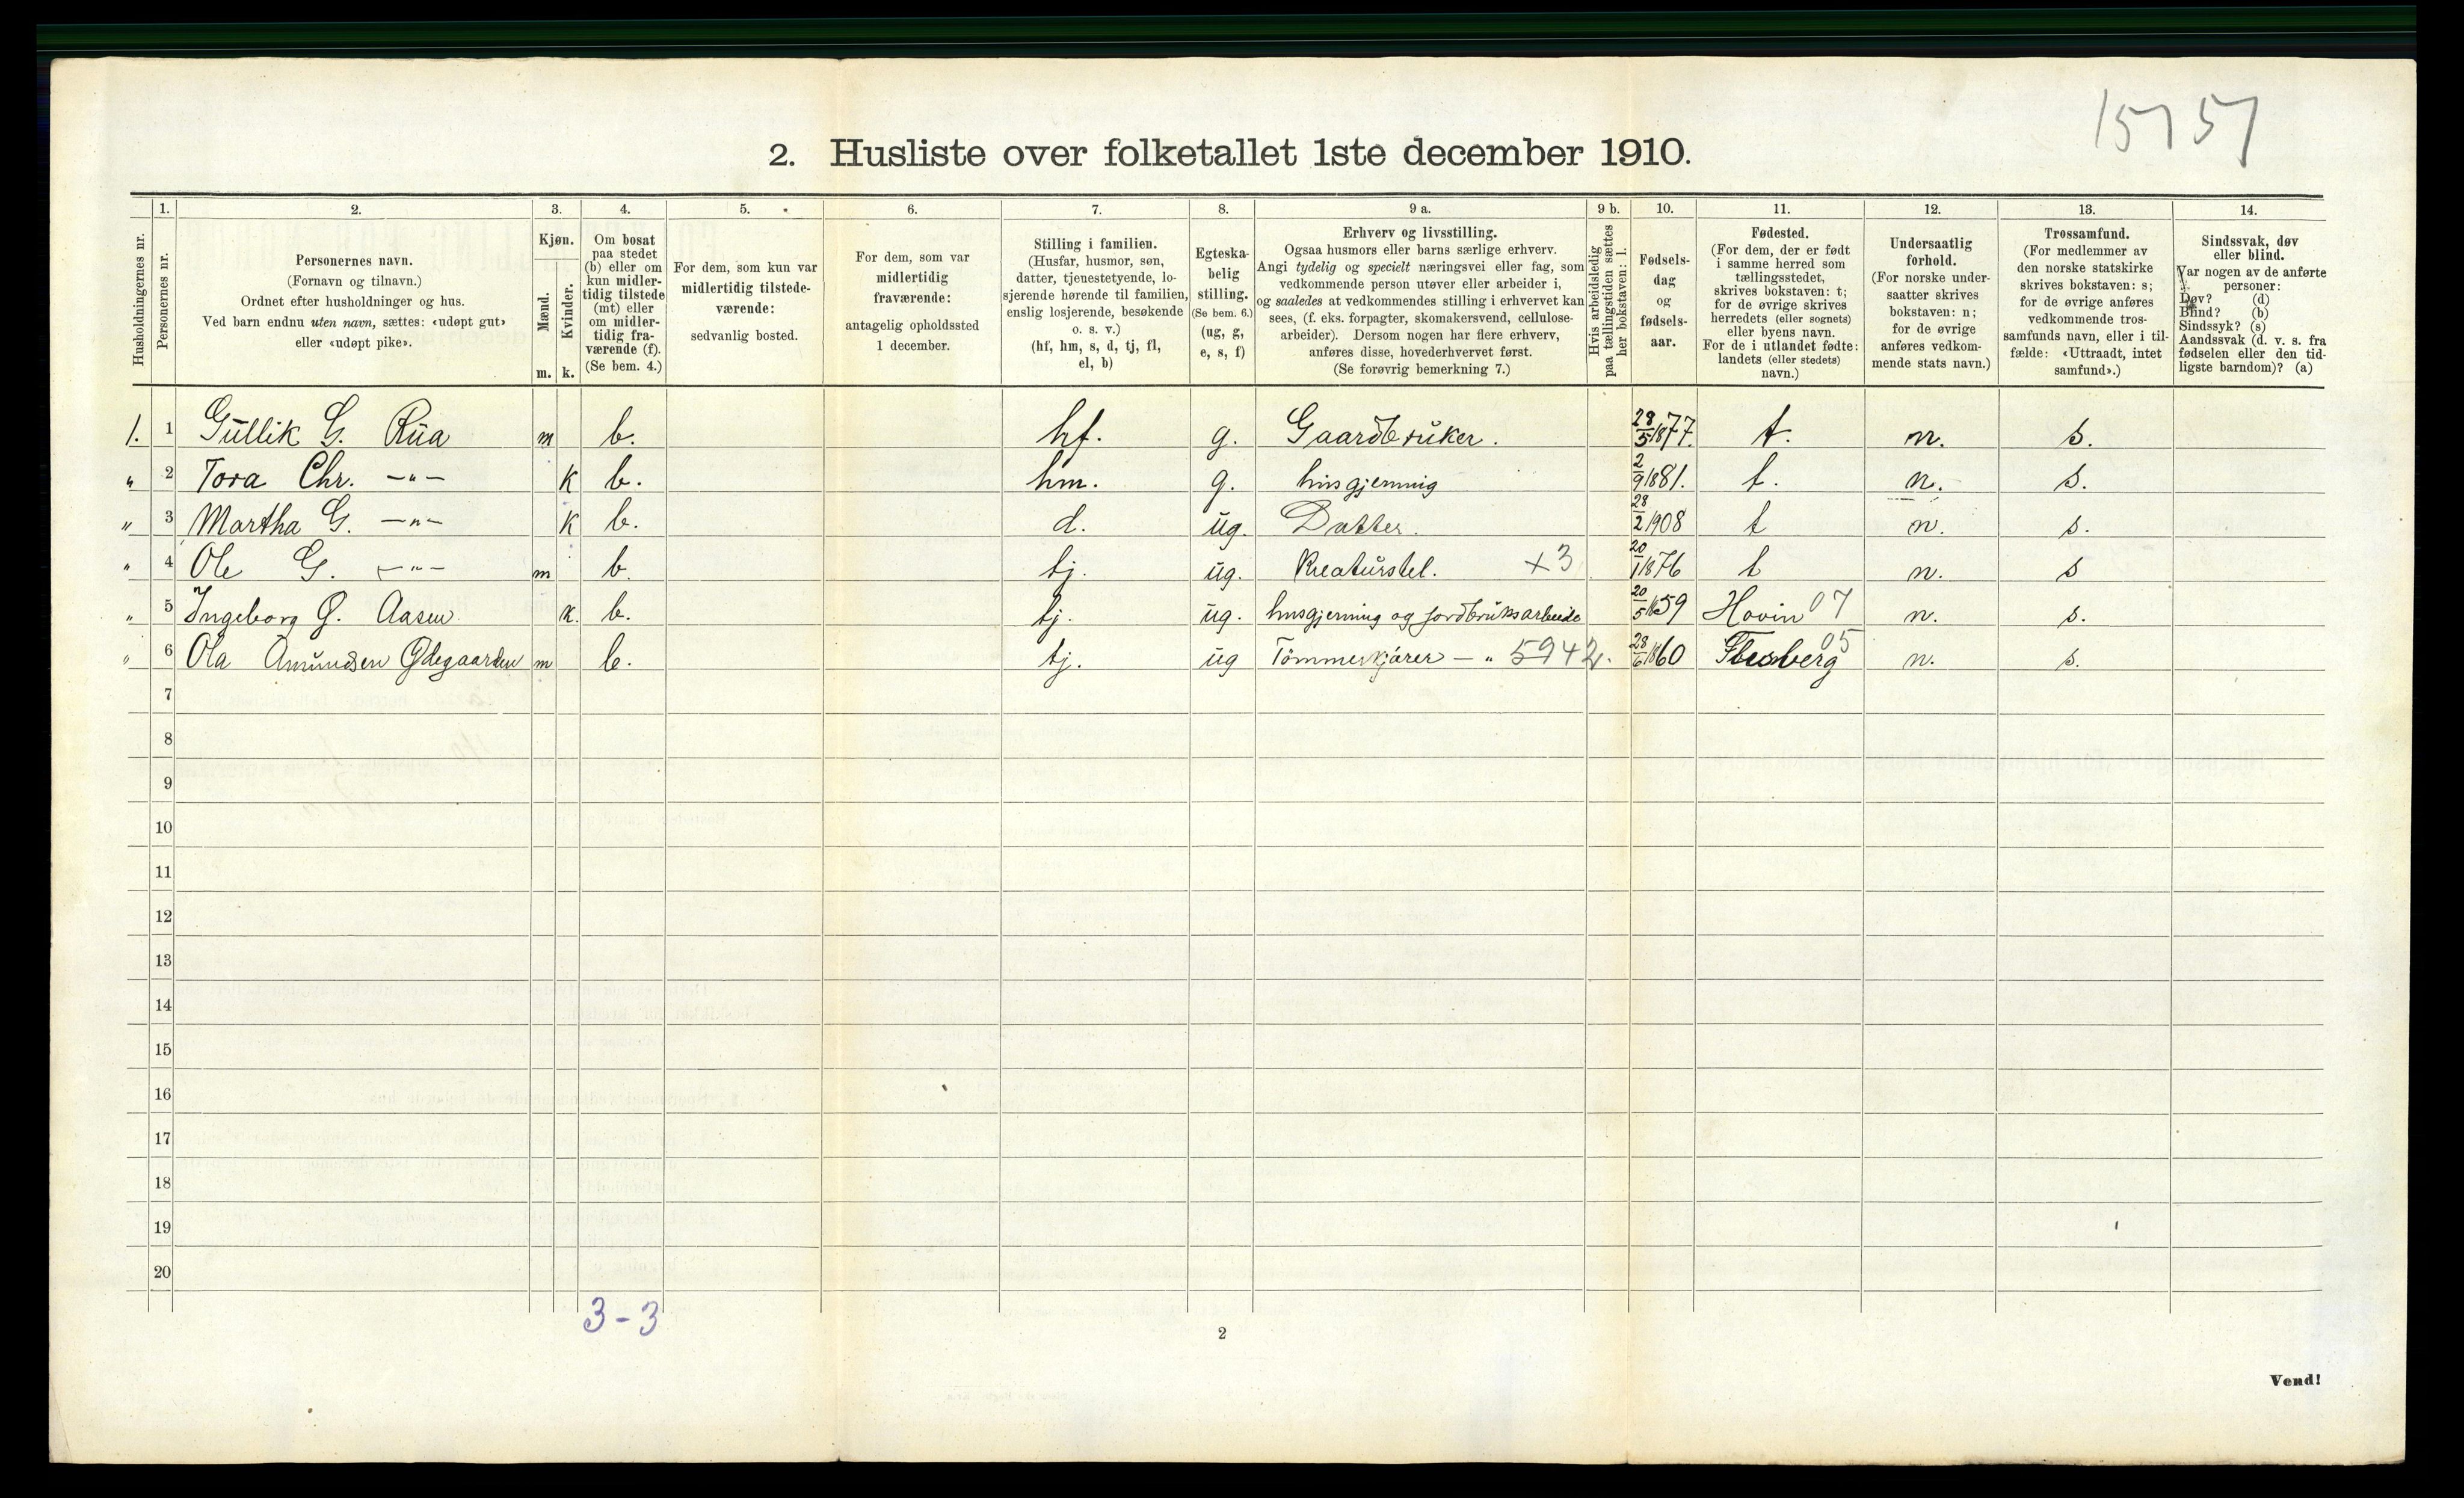 15757
2. Husliste over folketallet 1ste december 1910.
Husholdningernes nr.
1. Personernes nr.
2. Personernes navn.
(Fornavn og tilnavn.)
Ordnet efter husholdninger og hus.
Ved barn endnu uten navn, sættes: «udøpt gut»
eller «udøpt pike».
3. Kjøn.
Mænd. m.
Kvinder. k.
4. Om bosat
paa stedet
(b) eller om
kun midler-
tidig tilstede
(mt) eller
om midler-
tidig fra-
værende (f).
(Se bem. 4.)
5. For dem, som kun var
midlertidig tilstede-
værende:
sedvanlig bosted.
6. For dem, som var
midlertidig
fraværende:
antagelig opholdssted
1 december.
7. Stilling i familien.
(Husfar, husmor, søn,
datter, tjenestetyende, lo-
sjerende hørende til familien,
enslig losjerende, besøkende
o. s. v.)
(hf, hm, s, d, tj, fl,
el, b)
8. Egteska-
belig
stilling.
(Se bem. 6.)
(ug, g,
e, s, f)
9 a. Erhverv og livsstilling.
Ogsaa husmors eller barns særlige erhverv.
Angi tydelig og specielt næringsvei eller fag, som
vedkommende person utøver eller arbeider i,
og saaledes at vedkommendes stilling i erhvervet kan
sees, (f. eks. forpagter, skomakersvend, cellulose-
arbeider). Dersom nogen har flere erhverv,
anføres disse, hovederhvervet først.
(Se forøvrig bemerkning 7.)
9 b. Hvis arbeidsledig
paa tællingstiden sættes
her bokstaven: l.
10. Fødsels-
dag
og
fødsels-
aar.
11. Fødested.
(For dem, der er født
i samme herred som
tællingsstedet,
skrives bokstaven: t;
for de øvrige skrives
herredets (eller sognets)
eller byens navn.
For de i utlandet fødte:
landets (eller stedets)
navn.)
12. Undersaatlig
forhold.
(For norske under-
saatter skrives
bokstaven: n;
for de øvrige
anføres vedkom-
mende stats navn.)
13. Trossamfund.
(For medlemmer av
den norske statskirke
skrives bokstaven: s;
for de øvrige anføres
vedkommende tros-
samfunds navn, eller i til-
fælde: «Uttraadt, intet
samfund».)
14. Sindssvak, døv
eller blind.
Var nogen av de anførte
personer:
Døv? (d)
Blind? (b)
Sindssyk? (s)
Aandssvak (d. v. s. fra
fødselen eller den tid-
ligste barndom)? (a)
1. 1 Gullik G. Rua m b. hf. g. Gaardbruker. 28/5 1877. t. n. s.
" 2 Tora Chr. —"— k b. hm. g. husgjerning 2/9 1881. t. n. s.
" 3 Martha G. —"— k b. d. ug. Datter. 28/2 1908 t n. s.
" 4 Ole G. —"— m b. tj. ug. Kreaturstel. x3 20/1 1876 t n. s
" 5 Ingeborg G. Aasen k. b. tj. ug. husgjerning og jordbruksarbeide 20/5 1859 Hovin 07 n. s.
" 6 Ola Amundsen Ødegaarden m b. tj. ug Tømmerkjører —" 5942. 28/6 1860 Flesberg 05 n. s.
7
8
9
10
11
12
13
14
15
16
17
18
19
20
3 - 3
2
Vend!